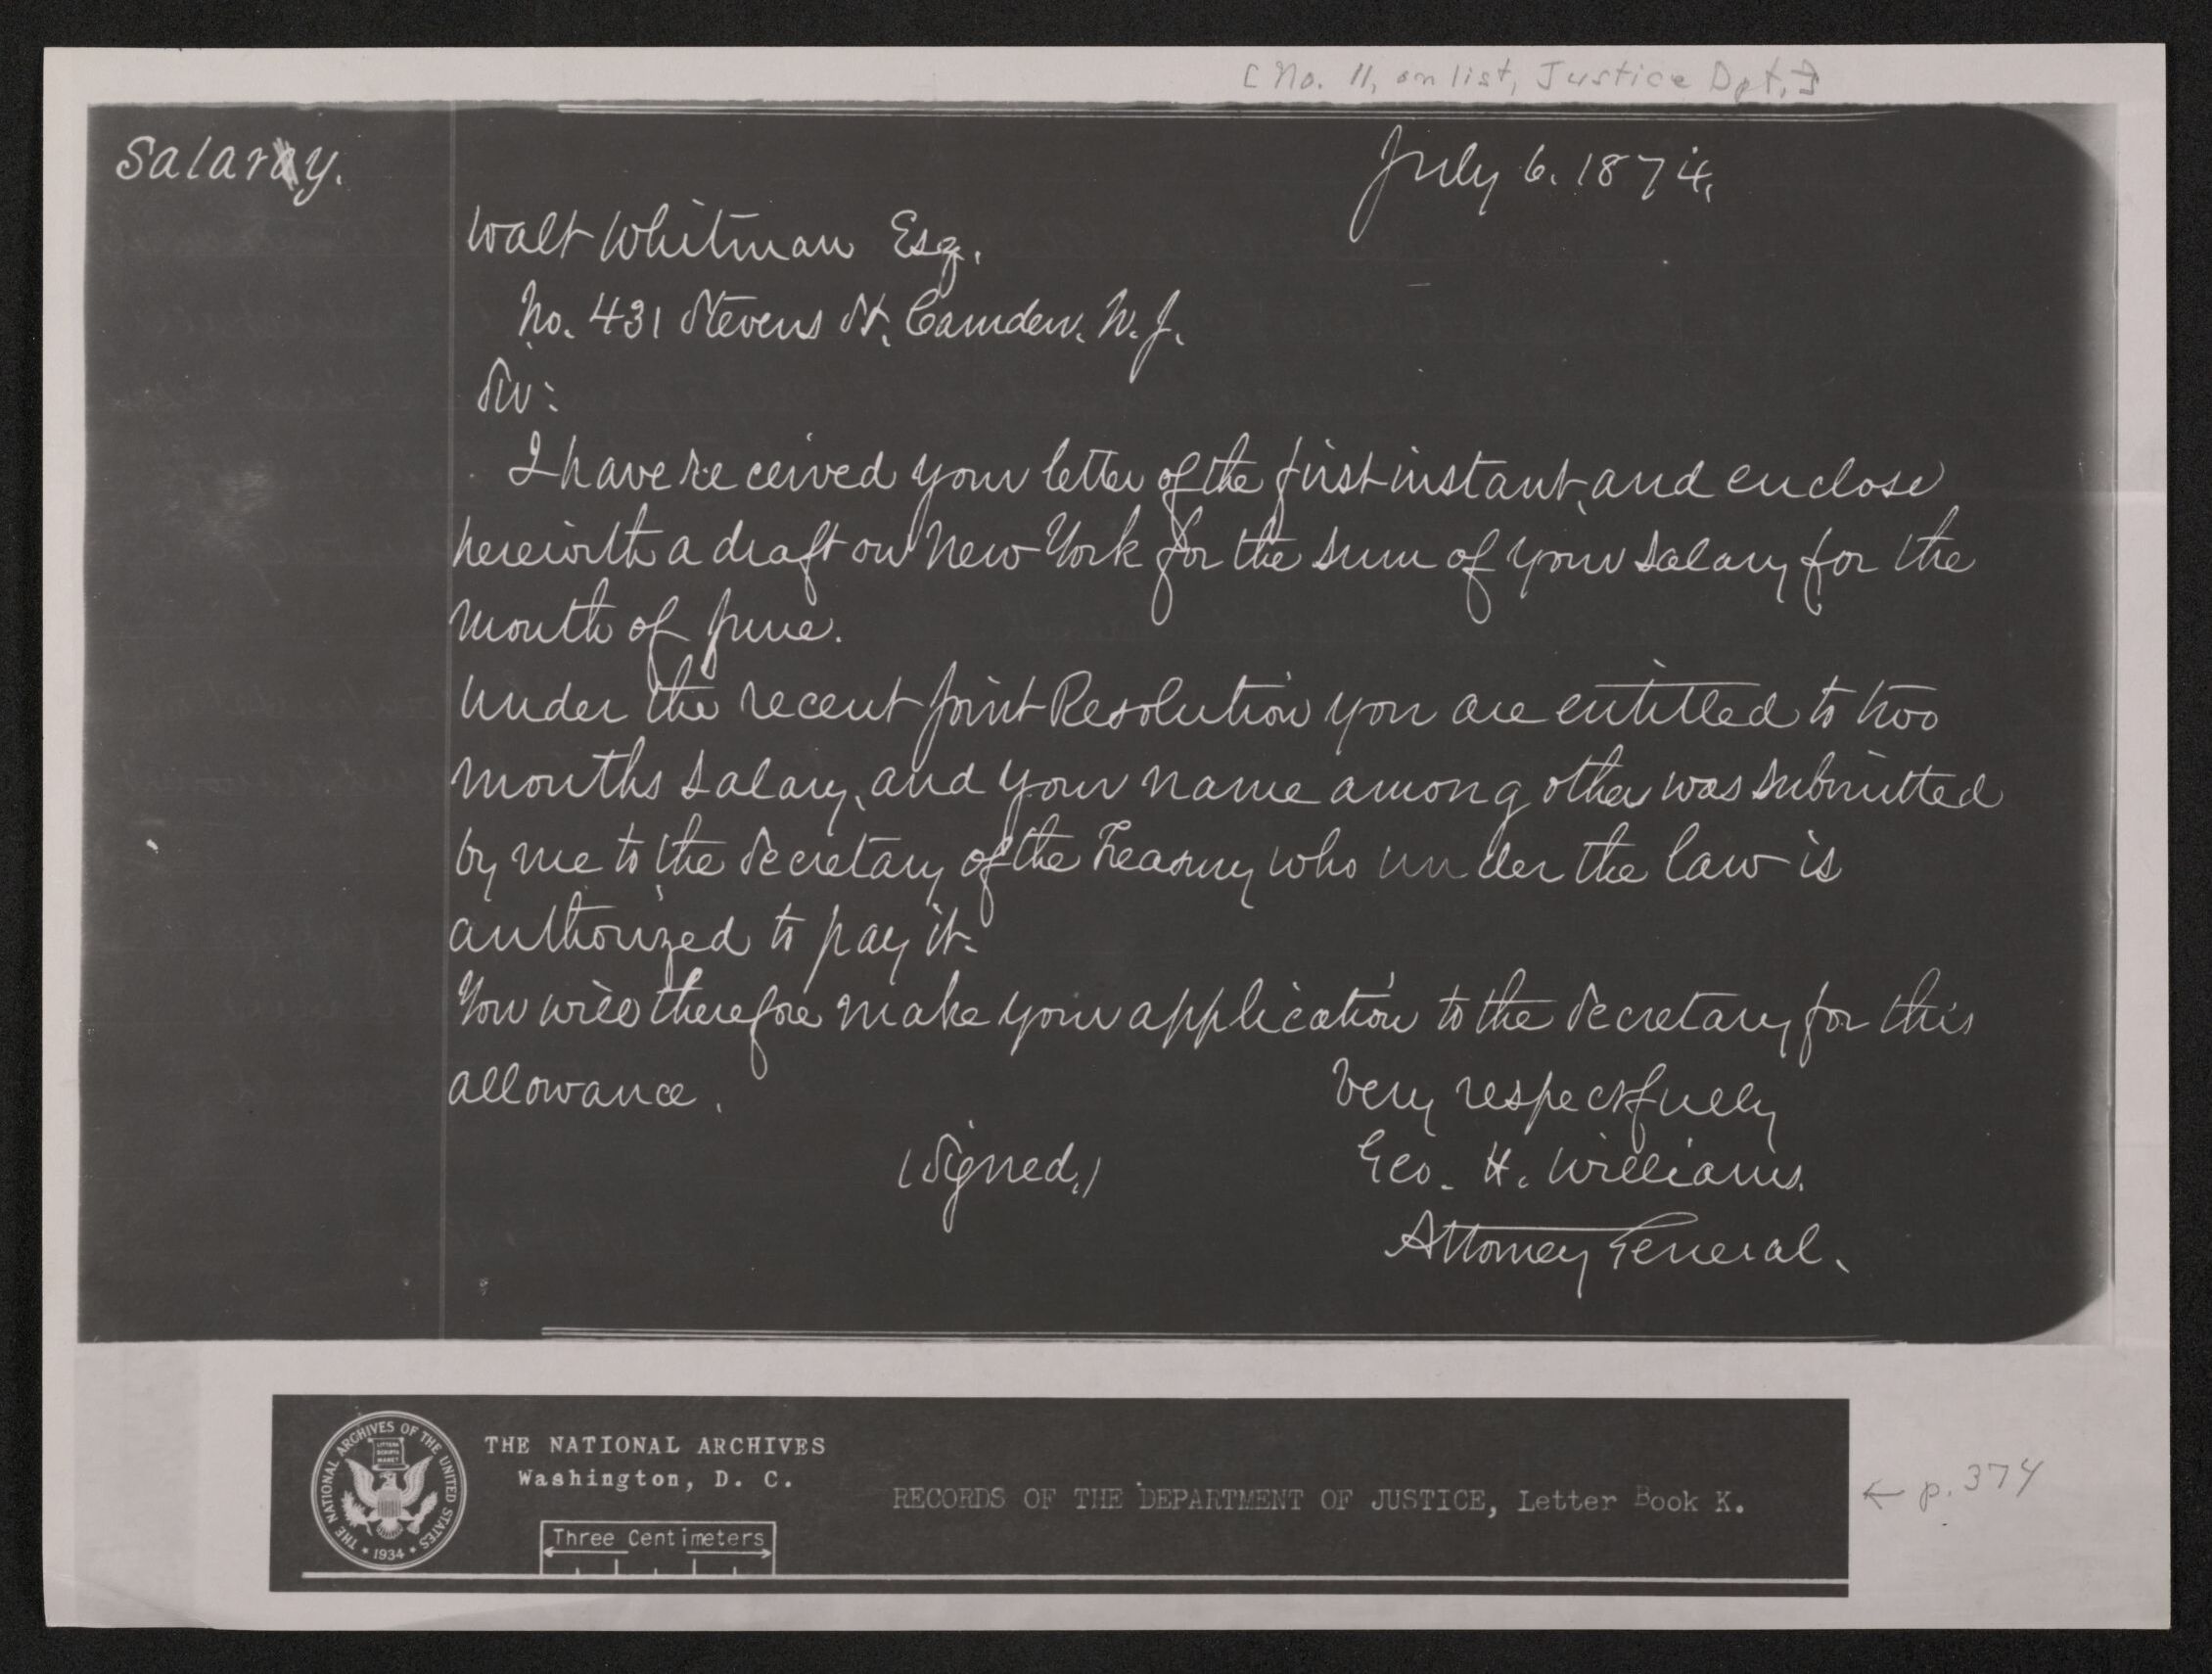 [No. 11, on list, Justice Dpt.]
Salary.
July 6. 1874.
Walt Whitman Esq.
No. 431 Stevens St. Camden. N. J.
Sir:
I have received your letter of the first instant, and enclose
herewith a draft on New York for the sum of your salary for the
month of June.
Under the recent joint Resolution you are entitled to two
months salary, and your name among other was submitted
by me to the Secretary of the Treasury who under the law is
authorized to pay it.
You will therefore make your application to the Secretary for this
allowance.
Very respectfully
(Signed,) Geo. H. Williams.
Attorney General.
THE NATIONAL ARCHIVES OF THE UNITED STATES
LITTERA SCRIPTA MANET
* 1934 *
THE NATIONAL ARCHIVES
Washington, D. C.
Three Centimeters
RECORDS OF THE DEPARTMENT OF JUSTICE, Letter Book K.
← p. 374